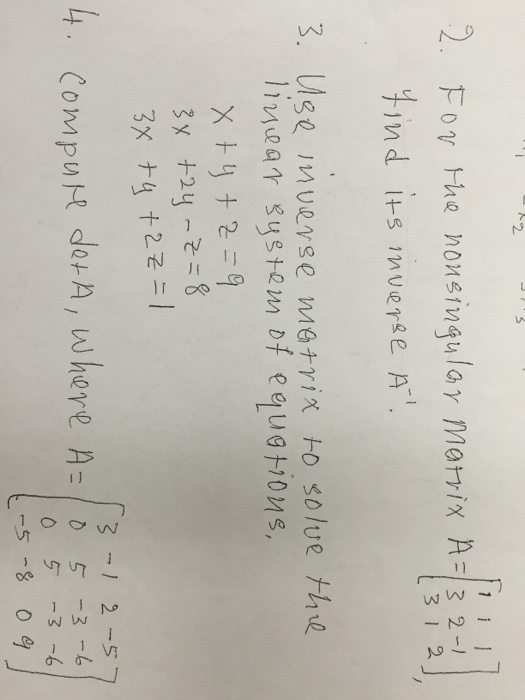 2. For the nonsingular Matrix A = [1 1 1
3 2 -1
3 1 2],
find its inverse A⁻¹.
3. Use inverse matrix to solve the
linear system of equations.
x + y + z = 9
3x + 2y - z = 8
3x + y + 2z = 1
4. Compute det A, where A = [3 -1 2 -5
0 5 -3 -6
0 5 -3 -6
-5 -8 0 9]